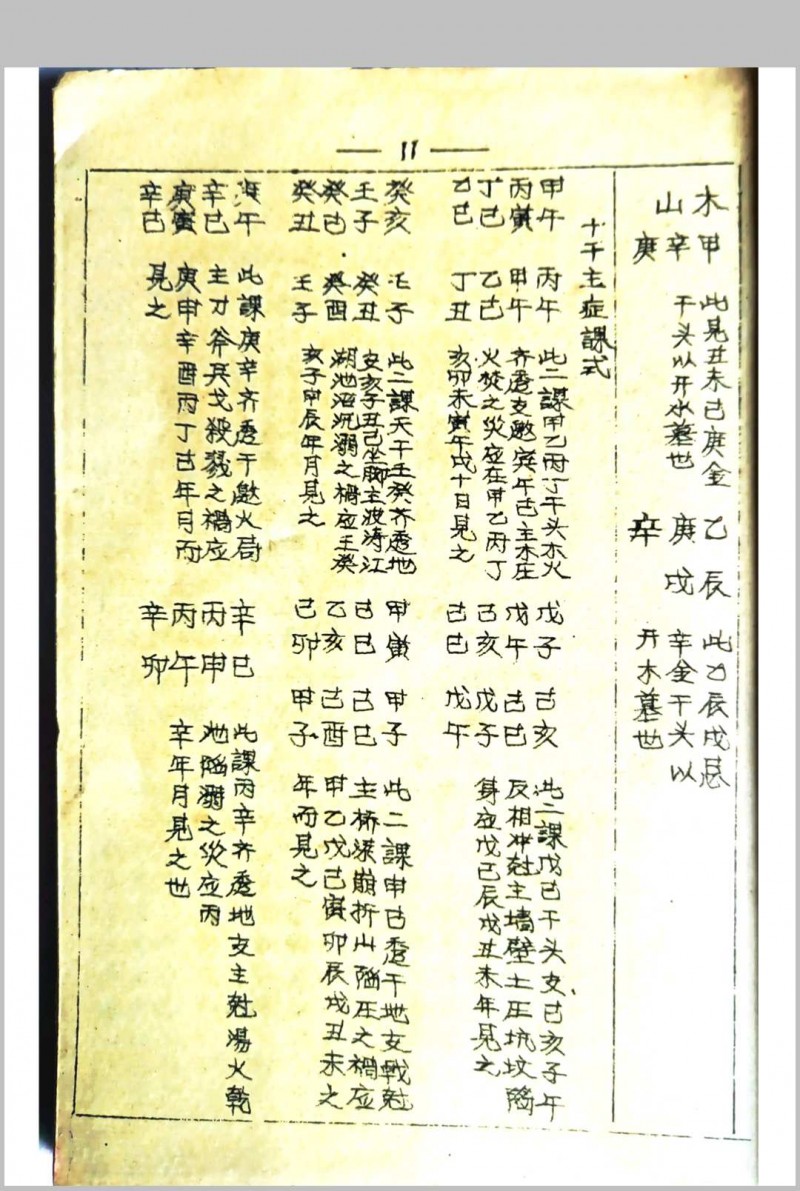 11
木山
甲辛庚
此見丑未己庚金
干头以开水墓也
乙辰
庚戌
辛
此乙辰戌忌
辛金干头以
开木墓也
十干主症課式
甲午 丙午
丙寅 甲午
丁巳 乙巳
乙巳 丁丑
此二課甲乙丙丁干头木火
齐透支邀寅午巳主木庄
火焚之災应在甲乙丙丁
亥卯未寅午戌十日見之
戊子 己亥
戊午 己巳
己亥 戊子
己巳 戊午
此二課戊己干头支巳亥子午
反相冲尅主墙壁土压坑坟陷
身应戊己辰戌丑未年見之
癸亥 壬子
壬子 癸丑
癸巳 癸酉
癸丑 壬子
此二課天干壬癸齐透地
支亥子丑己坐脚主波涛江
湖池沼沉溺之禍应壬癸
亥子甲辰年月見之
甲寅 甲子
己巳 己巳
乙亥 己酉
己卯 甲子
此二課甲己透干地支戰尅
主桥梁崩折山陷压之禍应
甲乙戊己寅卯辰戌丑未之
年而見之
庚午
辛巳
庚寅
辛巳
此課庚辛齐透干邀火局
主刀斧兵戈殺戮之禍应
庚申辛酉丙丁巳年月而
見之
辛巳
丙申
丙午
辛卯
此課丙辛齐透地支主尅湯火乾
池陷溺之災应丙
辛年月見之也